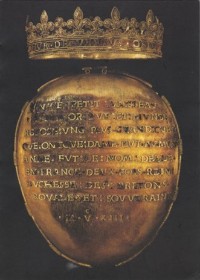 EN CE PETIT VAISSEAU
DE FIN OR PUR ET MUNDE
REPOSE UNG PLUS GRAND CUEUR
QUE ONCQUE DAME EUT AU MUNDE
ANNE FUT LE NOM DELLE
EN FRANCE DEUX FOIS ROINE
DUCHESSE DES BRETONS
ROYALE ET SOUVERAINE
M V XIII